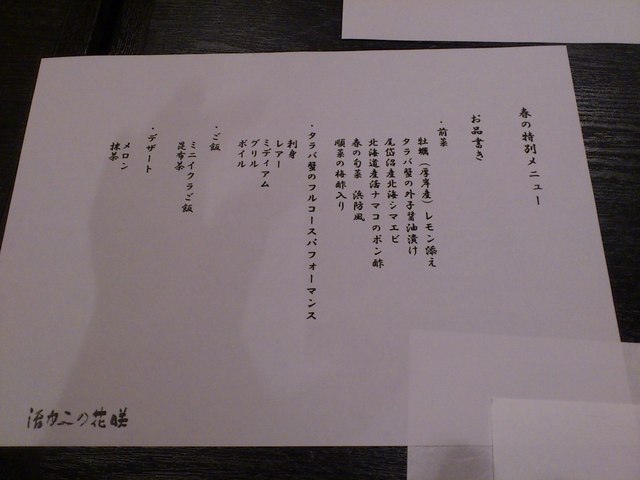 春の特別メニュー
お品書き
・前菜
牡蠣（厚岸産）レモン添え
タラバ蟹の外子醤油漬け
尾岱沼産北海シマエビ
北海道産活ナマコのポン酢
春の旬菜 浜防風
順菜の梅酢入り
・タラバ蟹のフルコースパフォーマンス
刺身
レアー
ミディアム
グリル
ボイル
・ご飯
ミニイクラご飯
昆布茶
・デザート
メロン
抹茶
活カニの花咲